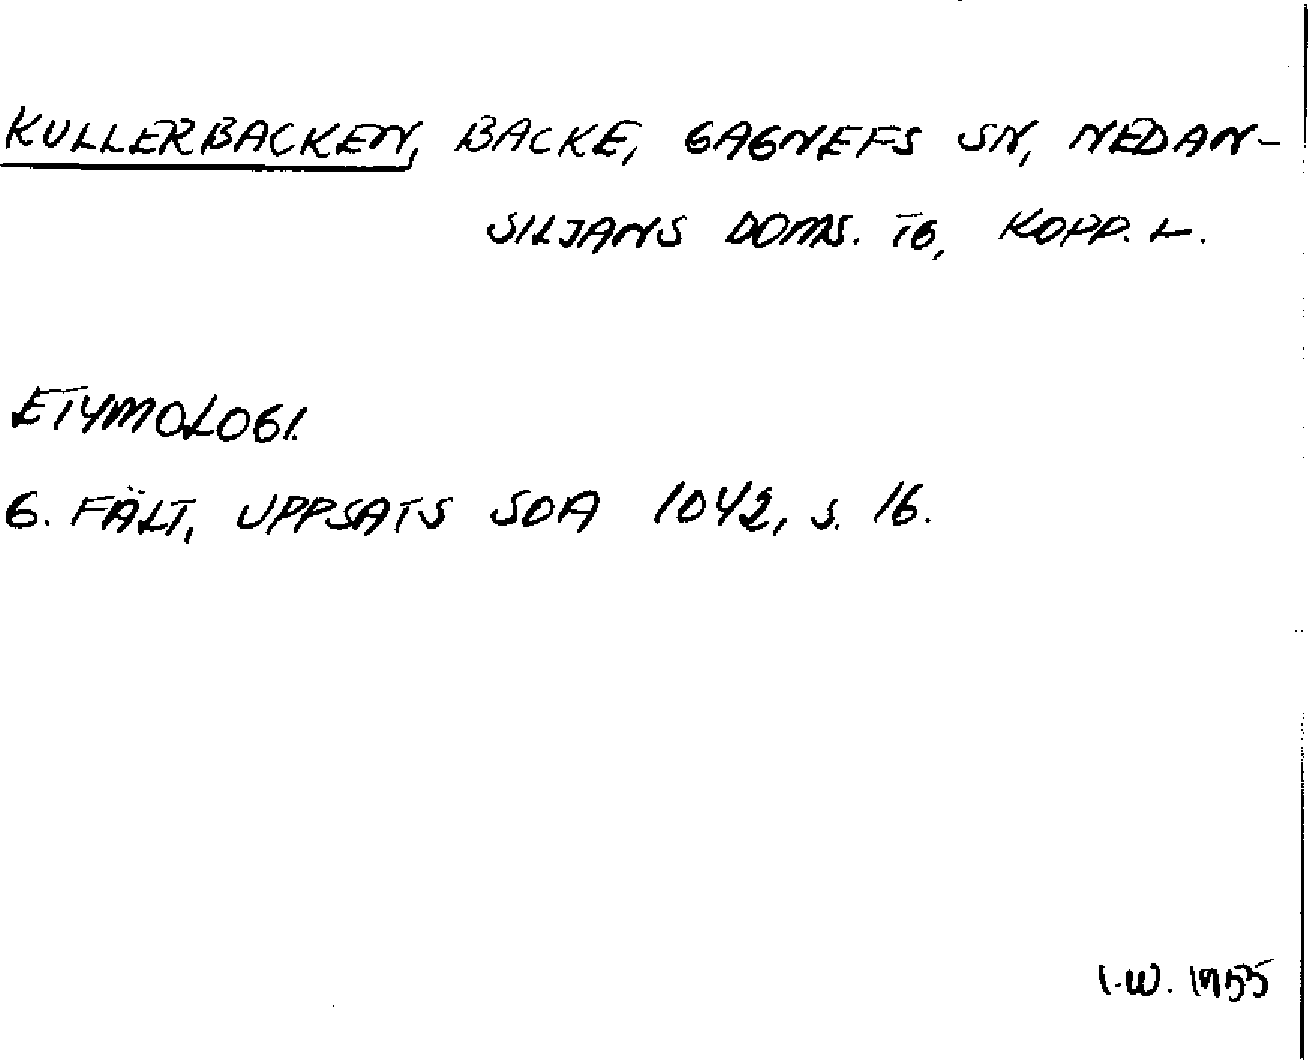 KULLERBACKEN, BACKE, GAGNEFS SN, NEDAN-
SILJANS DOMS. TG, KOPP. L.
ETYMOLOGI.
G. FÄLT, UPPSATS SOA 1042, S. 16.
I.W. 1955